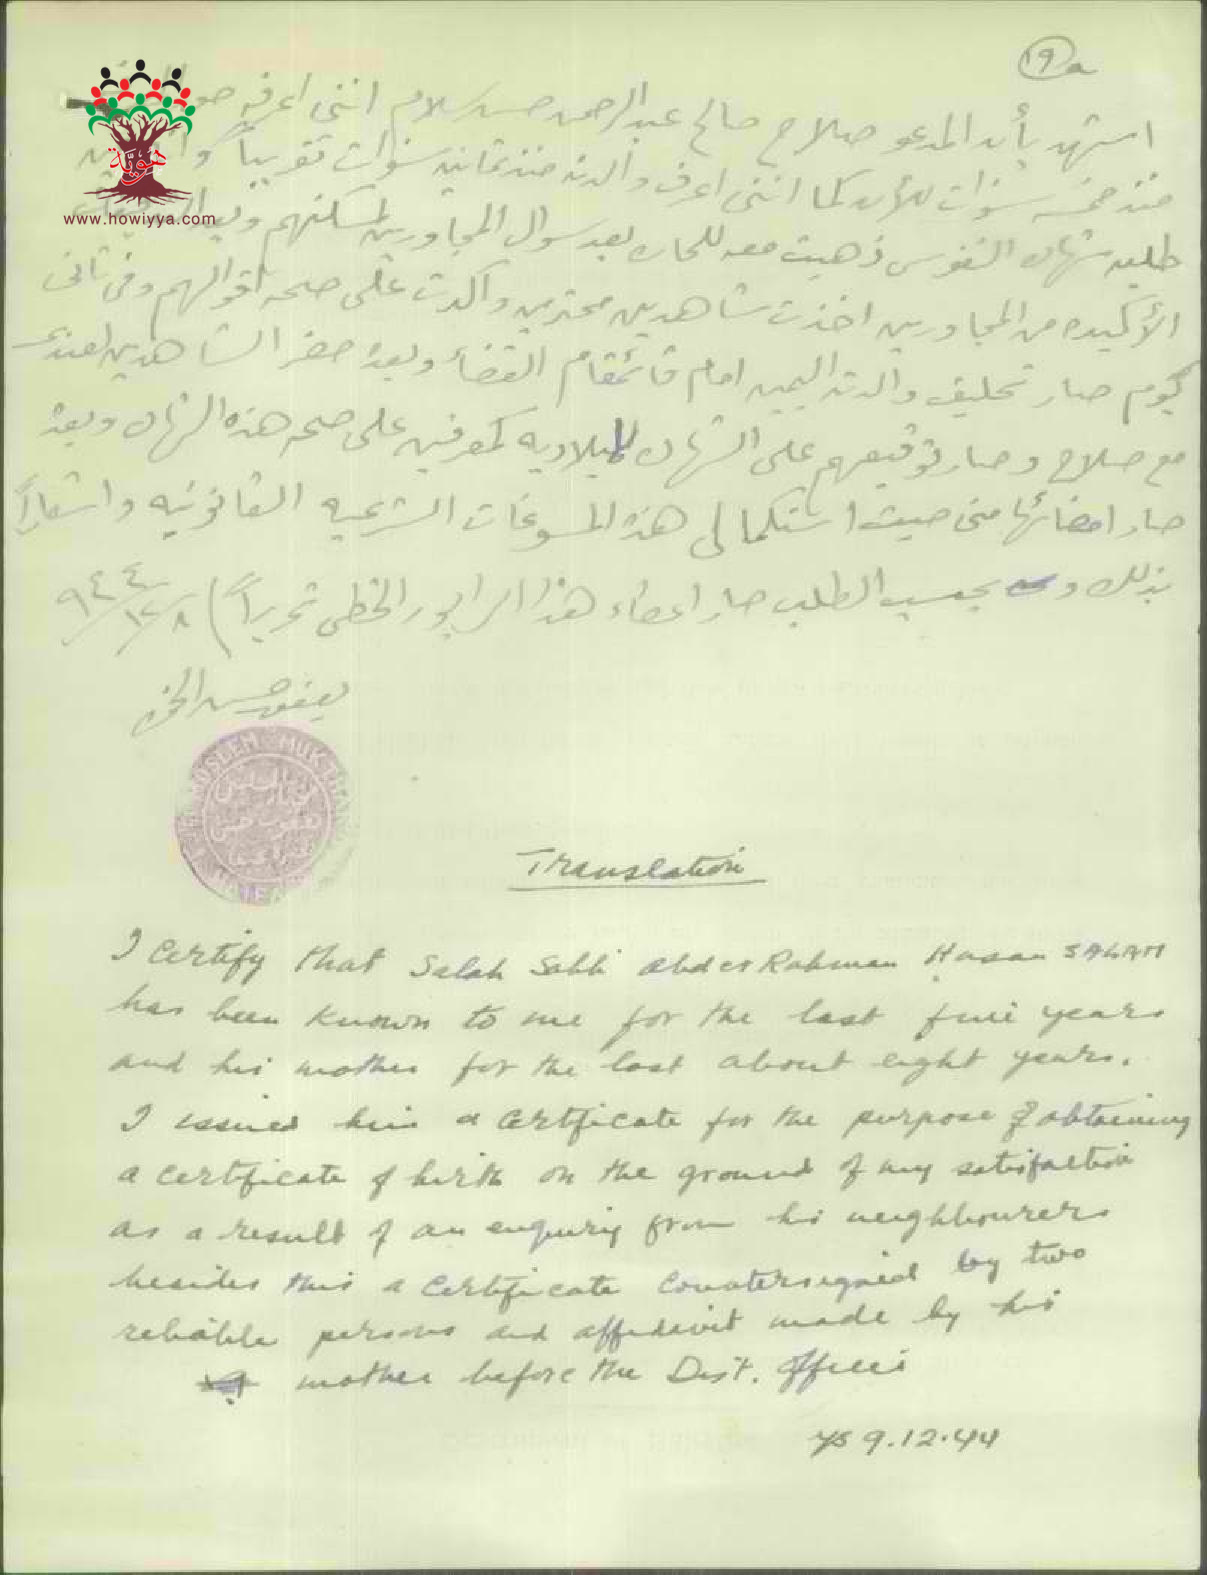 19 a
هوية
www.howiyya.com
اشهد بأن المدعو صلاح صالح عبدالرحمن حسن سلام انني اعرفه
منذ خمسة سنوات للأن كما انني اعرف والدته منذ ثمانية سنوات تقريباً
طلبه شهادة النفوس ذهبت معه للحارة بعد سوال المجاورين لمسكنهم وبعد
الأكيده من المجاورين اخذت شاهدين محترمين وأكدت على صحة اقوالهم وفي ثاني
يوم صار تحليف والدته اليمين امام قائمقام القضاء وبعده حضر الشاهدين لعندي
مع صلاح وصار توقيعهم على الشهادة الميلادية كمعرفين على صحة هذه الشهادة وبعده
صار امضائها مني حيث استكمالي هذه المسوغات الشرعيه القانونيه واشعاراً
بذلك و بحسب الطلب صار اعطاء هذا الرابور الخطي تحريراً ٨/١٢/٩٤٤
يعقوب حسن
MOSLEM MUKHTAR
HAIFA
Translation
I certify that Salah Salih abder Rahman Hasan SALAM
has been known to me for the last five years
and his mother for the last about eight years.
I issued him a certificate for the purpose of obtaining
a certificate of birth on the ground of my satisfaction
as a result of an enquiry from his neighbourers
besides this a certificate countersigned by two
reliable persons and affidavit made by his
mother before the Dist. Officer
9.12.44